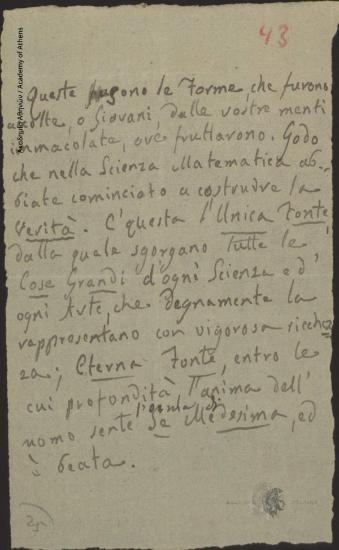 43
Ακαδημία Αθηνών / Academy of Athens
Queste fugono le Forme, che furono
accolte, o Giovani, dalle vostre menti
immacolate, ove fruttarono. Godo
che nella Scienza Matematica ab-
biate cominciato a costruire la
Verità. C'questa l'Unica Fonte
dalla quale sgorgano Tutte le
Cose Grandi d'ogni Scienza ed'
ogni Arte, che degnamente la
rappresentano con vigorosa ricchez
za; Eterna Fonte, entro le
cui profondità l'anima dell'
uomo sente Se Medesima, ed
è beata.
25